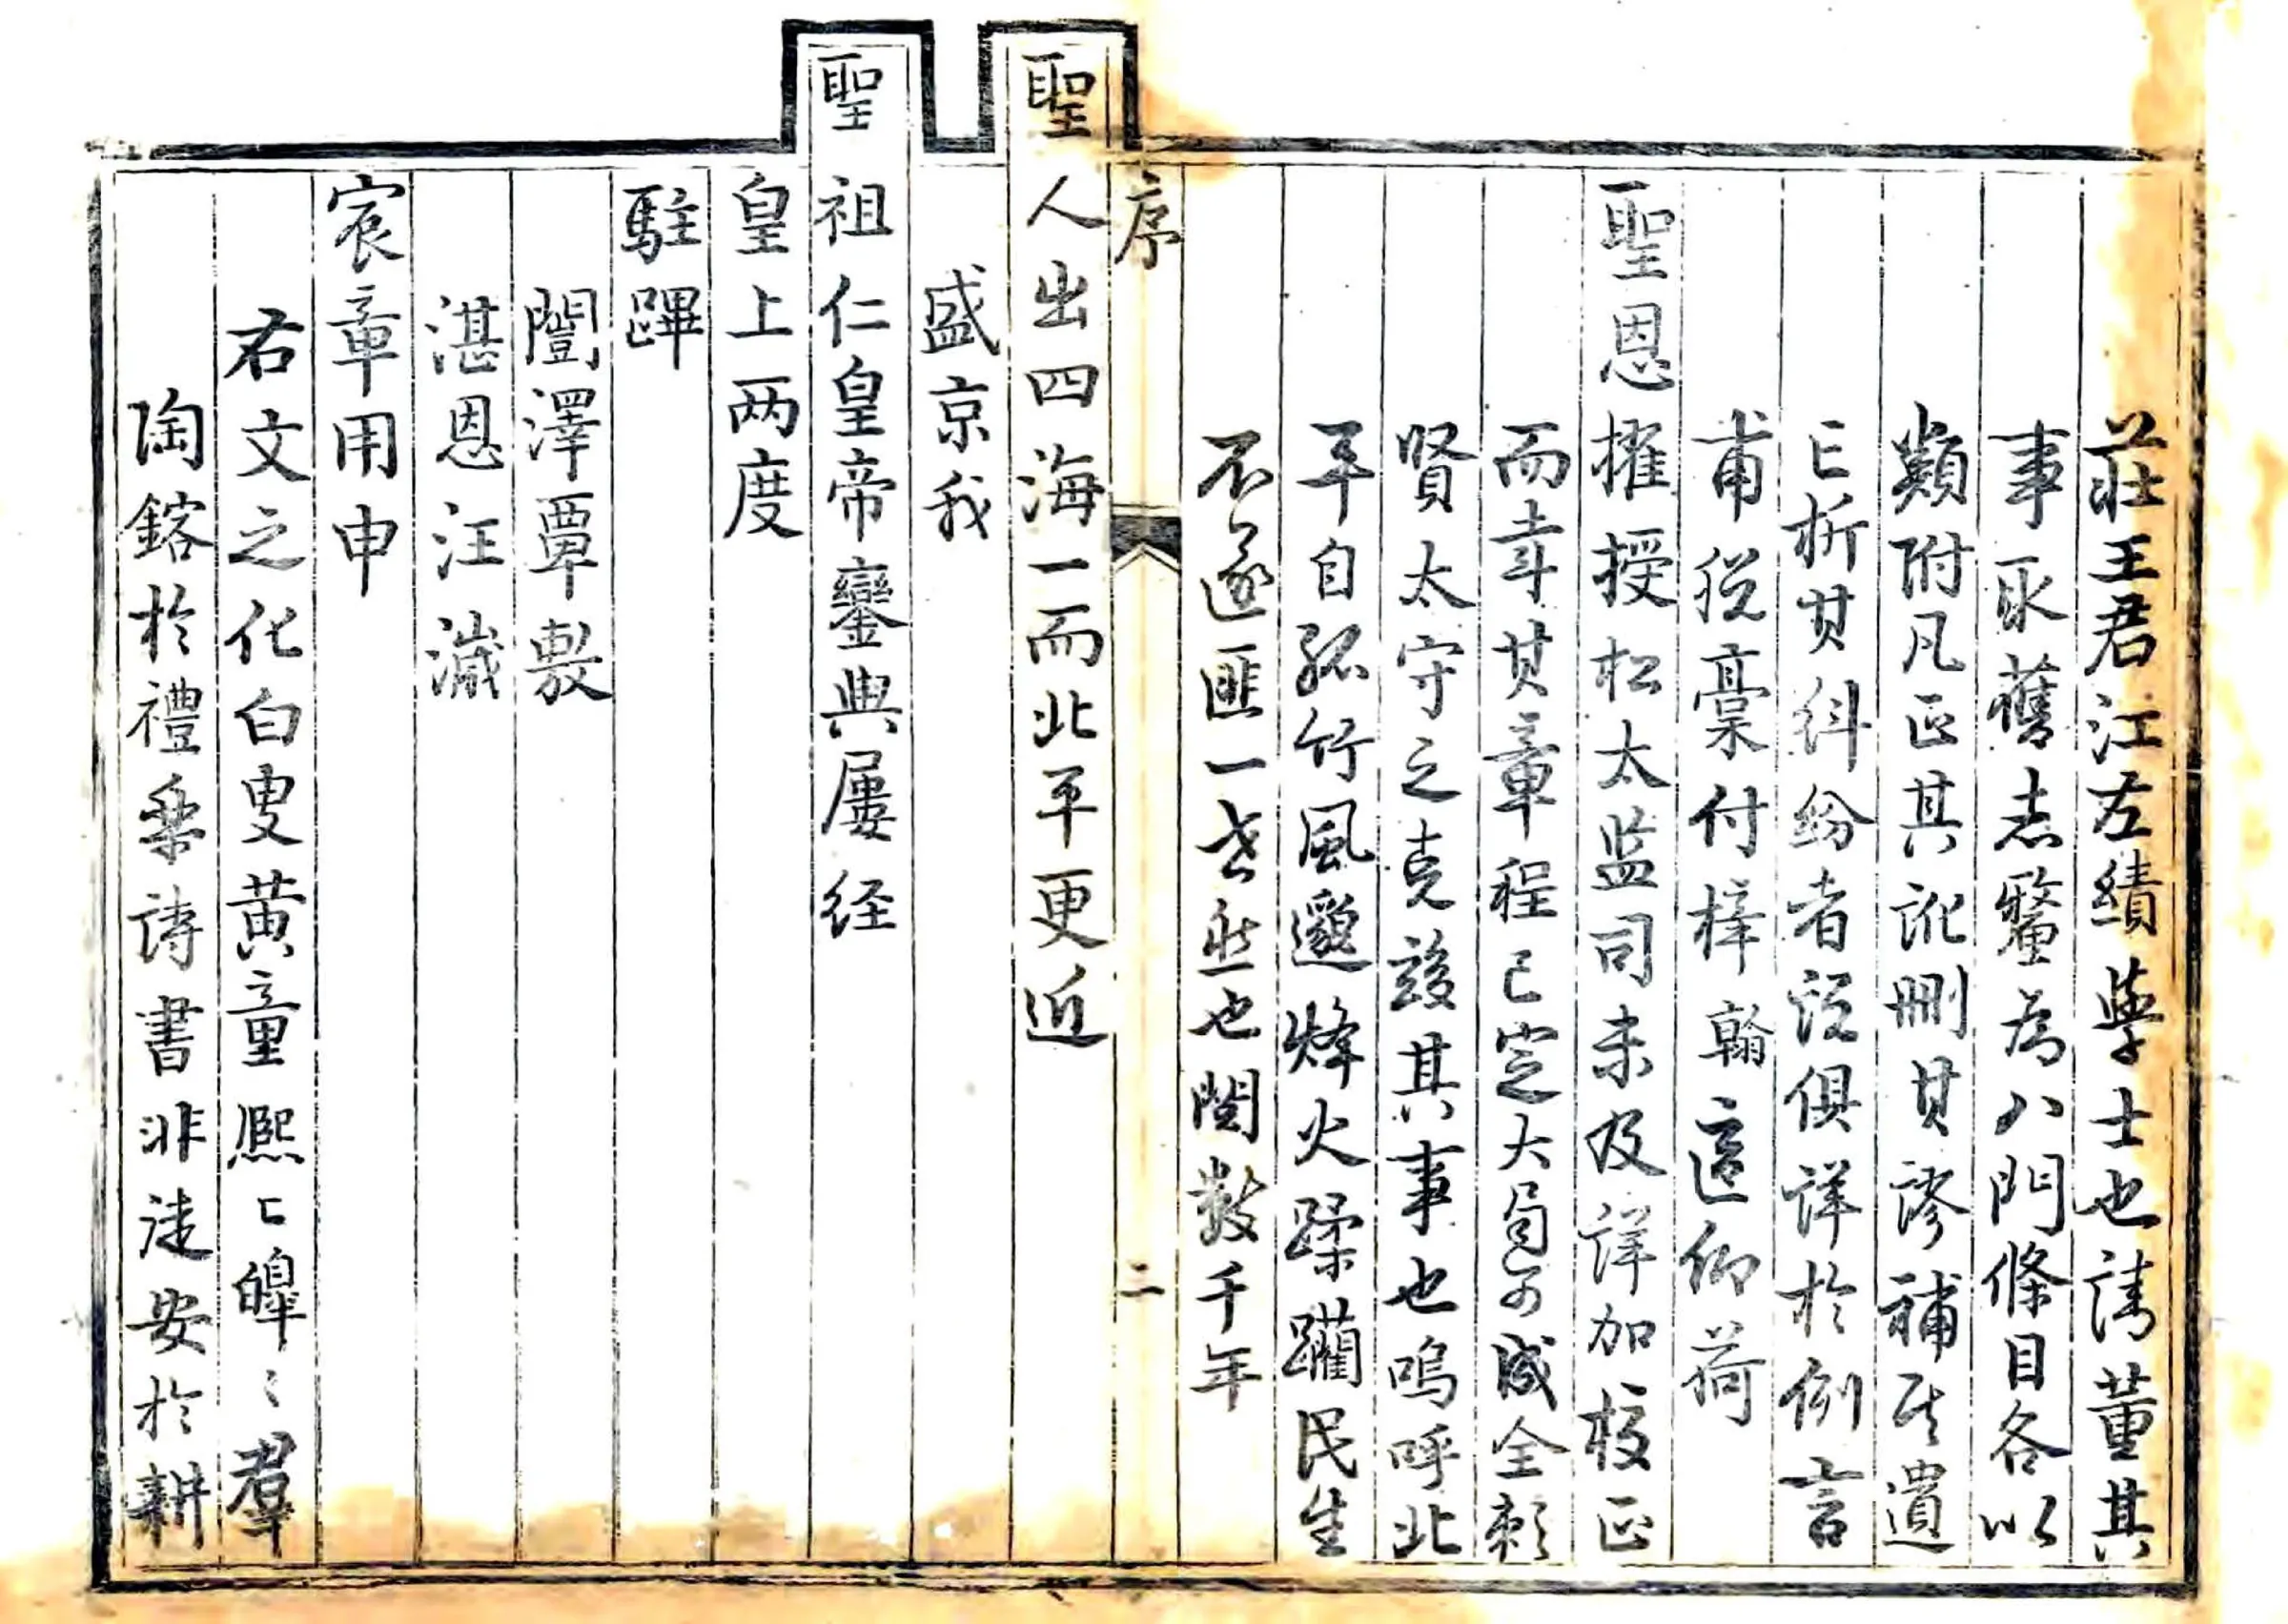 莊王君江左績學士也請董其
事取舊志釐為八門條目各以
類附凡正其訛刪其謬補其遺
已析其糾紛者設俱詳於例言
甫脫稾付梓翰適仰荷
聖恩擢授松太监司未及詳加校正
而幸其章程已定大局可成全賴
賢太守之克竣其事也嗚呼北
平自孤竹風邈烽火蹂躪民生
不遂匪一世然也閱數千年
序
二
聖人出四海一而北平更近
盛京我
聖祖仁皇帝鑾輿屢经
皇上两度
駐蹕
闓澤覃敷
湛恩汪濊
宸章用申
右文之化白叟黄童熙〻皥〻羣
陶鎔於禮樂詩書非徒安於耕